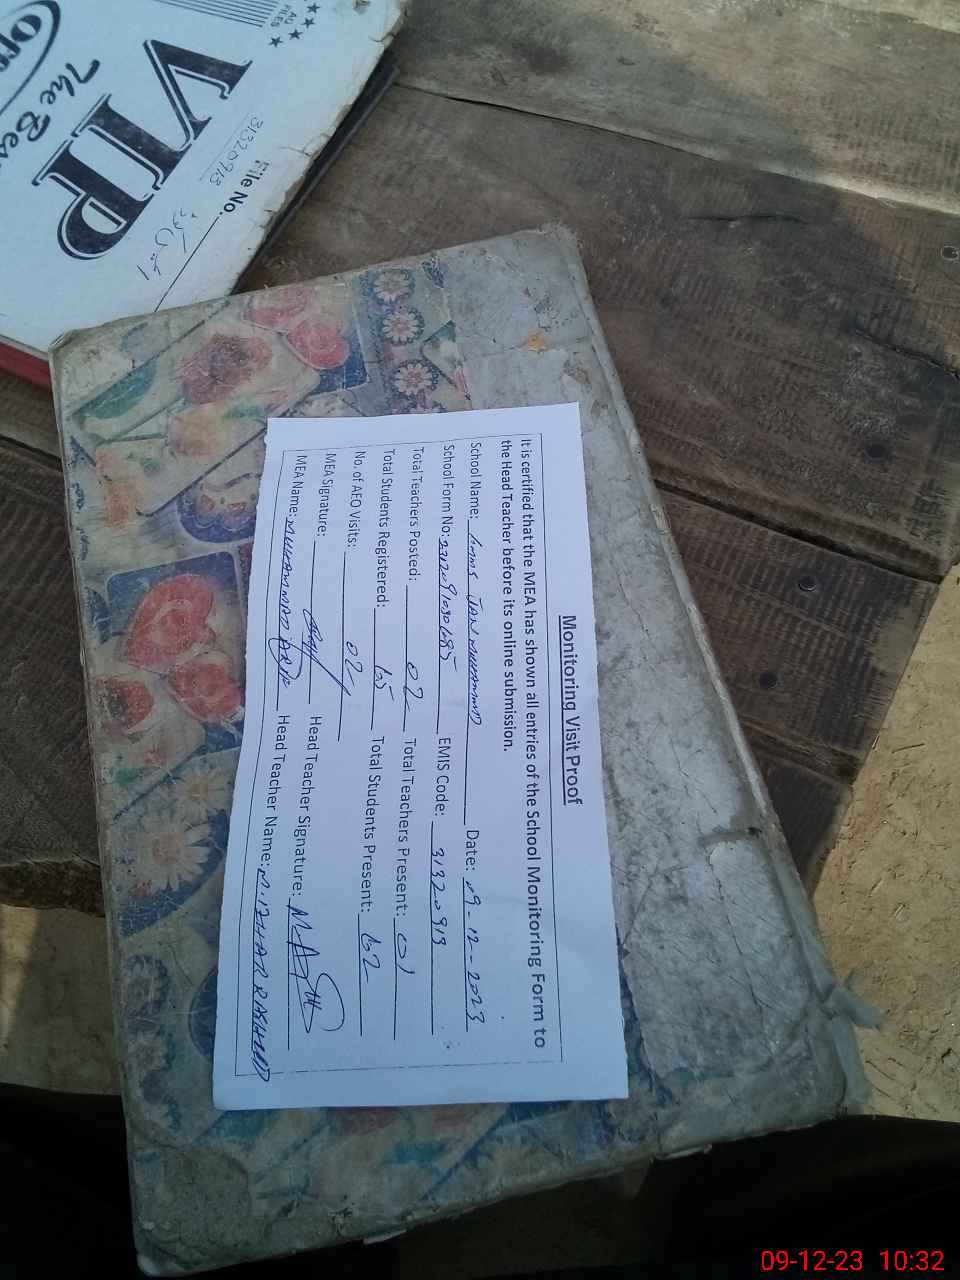 AQ
FILES
VIP
The Bes
File No.
31320913
Monitoring Visit Proof
It is certified that the MEA has shown all entries of the School Monitoring Form to
the Head Teacher before its online submission.
School Name: JAN MUHAMMAD Date: 09-12-2023
School Form No: EMIS Code: 31320913
Total Teachers Posted: 02 Total Teachers Present: 01
Total Students Registered: 65 Total Students Present: 62
No. of AEO Visits: 02
MEA Signature: Head Teacher Signature:
MEA Name: MUHAMMAD ARIF Head Teacher Name: M. IZHAR RASHEED
09-12-23 10:32